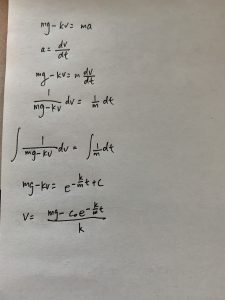 mg - kv = ma
a = dv/dt
mg - kv = m dv/dt
1/(mg - kv) dv = 1/m dt
∫ 1/(mg - kv) dv = ∫ 1/m dt
mg - kv = e^(-k/m t + C)
v = (mg - C₀e^(-k/m t))/k